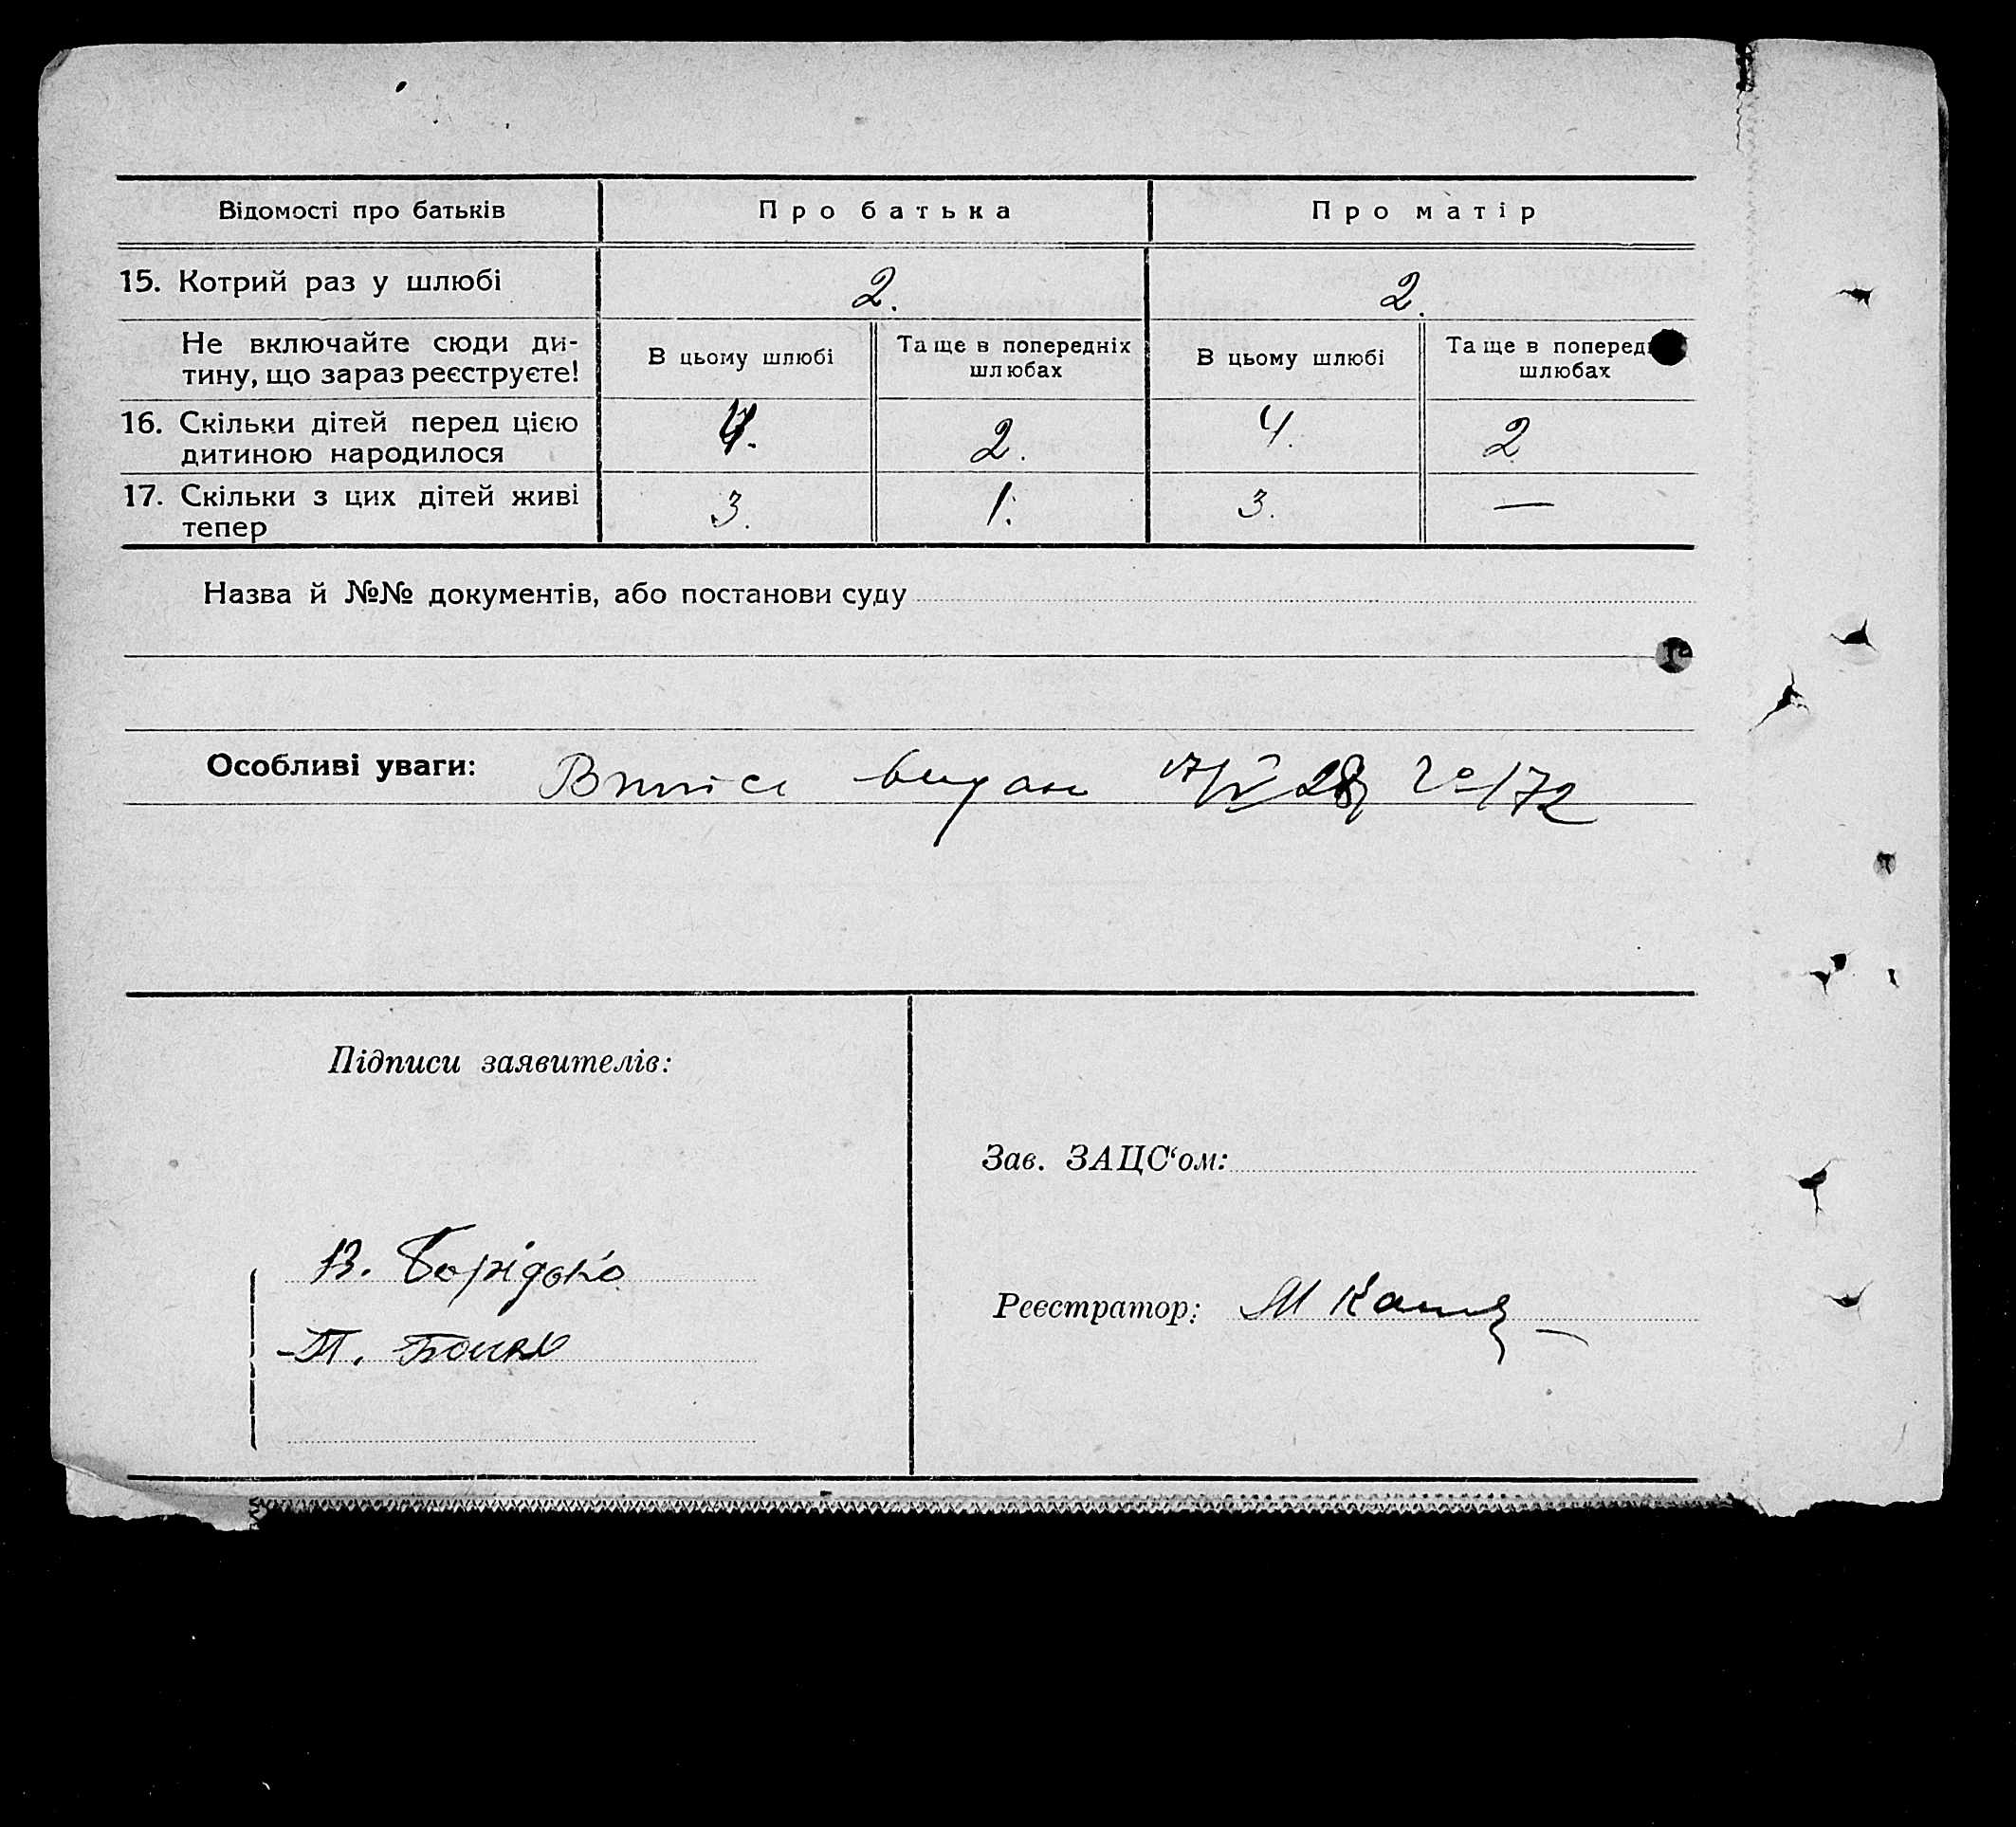 Відомості про батьків Про батька Про матір
15. Котрий раз у шлюбі 2. 2.
Не включайте сюди ди-
тину, що зараз реєструєте!
В цьому шлюбі
Та ще в попередніх
шлюбах
В цьому шлюбі
Та ще в поперед
шлюбах
16. Скільки дітей перед цією
дитиною народилося
4. 2. 4. 2
17. Скільки з цих дітей живі
тепер
3. 1. 3. —
Назва й №№ документів, або постанови суду
Особливі уваги: Виписі видан 28 № 172
Підписи заявителів:
Зав. ЗАЦС‘ом:
В.
Реєстратор: М
П.